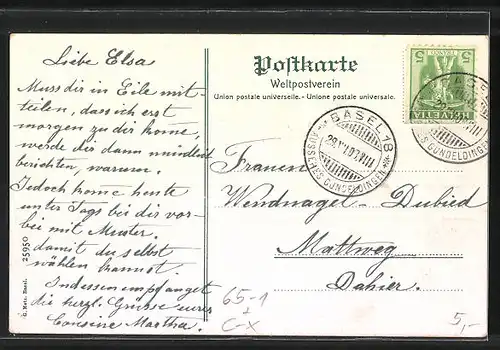 Liebe Elsa
Muss dir in Eile mit-
teilen, dass ich erst
morgen zu dir kome,
werde dir dann mündlich
berichten, warum.
Jedoch kome heute
unter Tags bei dir vor-
bei mit Muster.
damit du selbst
wählen kannst.
Indessen empfanget
die herzl. Grüsse eurer
Cousine Martha.
G. Metz, Basel. 25950
Postkarte
Weltpostverein
Union postale universelle. - Unione postale universale.
HELVETIA
5 FRANCO 5
BASEL 18
GUNDELDINGEN
BASEL
GUNDELDINGEN
Frauen
Wendnagel-Dubied
Mattweg
Dahier.
65-1
5,-